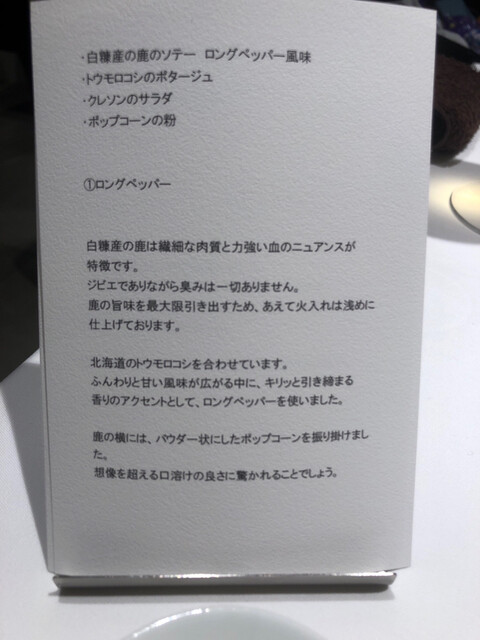 ・白糠産の鹿のソテー ロングペッパー風味
・トウモロコシのポタージュ
・クレソンのサラダ
・ポップコーンの粉
①ロングペッパー
白糠産の鹿は繊細な肉質と力強い血のニュアンスが
特徴です。
ジビエでありながら臭みは一切ありません。
鹿の旨味を最大限引き出すため、あえて火入れは浅めに
仕上げております。
北海道のトウモロコシを合わせています。
ふんわりと甘い風味が広がる中に、キリッと引き締まる
香りのアクセントとして、ロングペッパーを使いました。
鹿の横には、パウダー状にしたポップコーンを振り掛けまし
た。
想像を超える口溶けの良さに驚かれることでしょう。